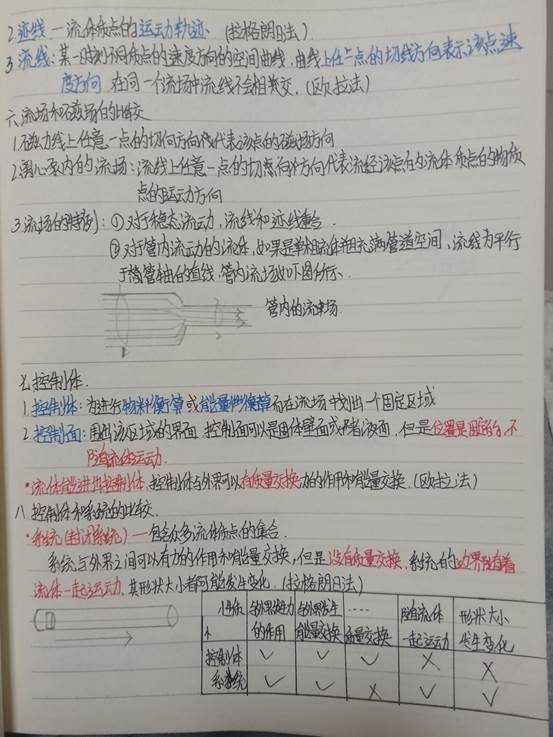 2.迹线—流体质点的运动轨迹、(拉格朗日法)
3流线:某一时刻不同质点的速度方向的空间曲线,曲线上任一点的切线方向表示该点速
度方向 在同一个流场中流线不会相交.(欧拉法)
六.流场和磁场的比较
1.磁力线上任意一点的切向方向代表该点的磁场方向
2.离心泵内的流场:流线上任意一点的切向方向代表流经该点的流体质点的物质
点的运动方向
3.流场的特例:①对于稳态流动,流线和迹线重合.
②对于管内流动的流体,如果是单相流体并且充满管道空间、流线为平行
于管轴的直线.管内流场如下图所示、
管内的流场
七控制体.
1.控制体:为进行物料衡算或能量衡算而在流场中划出一个固定区域
2.控制面:围出该区域的界面 控制面可以是固体壁面或者液面,但是位置是固定的,不
随流体运动
·流体能进出控制体 控制体与外界可以有质量交换力的作用和能量交换.(欧拉法)
八.控制体和系统的比较.
·系统(封闭系统)—包含众多流体质点的集合.
系统与外界之间可以有力的作用和能量交换,但是没有质量交换.系统的边界随着
流体一起运动,其形状大小都可能发生变化.(拉格朗日法)
性质 与外界有力 与外界发生 …… 随流体 形状大小
的作用 能量交换 质量交换 一起运动 发生变化
控制体 ✓ ✓ ✓ × ×
系统 ✓ ✓ × ✓ ✓